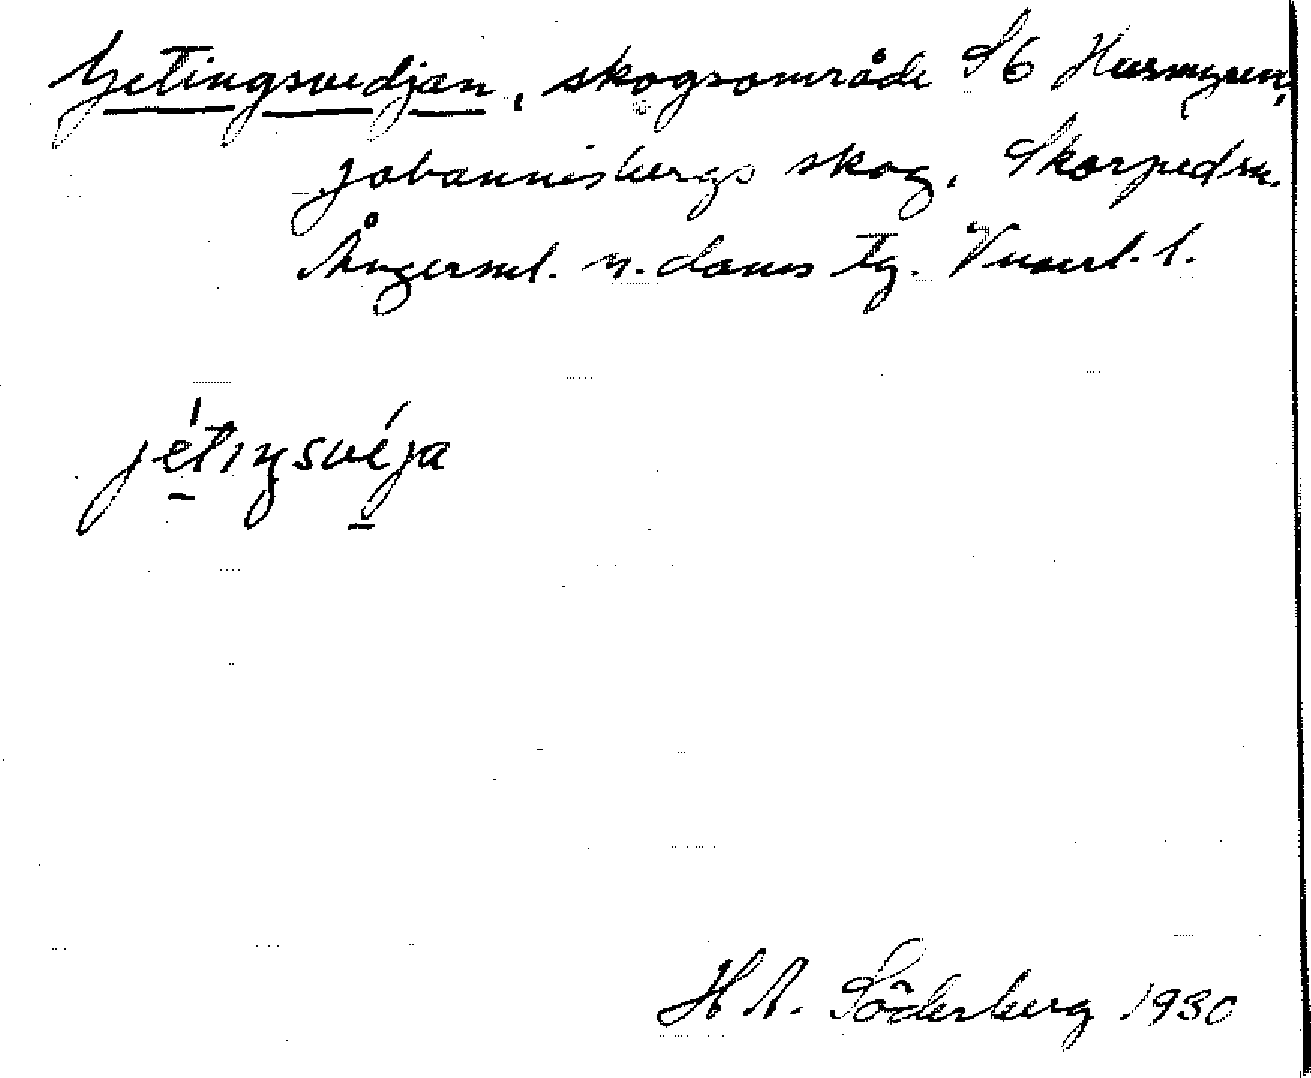 Getingsvedjan, skogsområde SÖ Husmyren,
Johannisbergs skog, Skorpedsn.
Ångerml. n. doms tg. Vnorl. l.
jétıŋsvéja
H A. Söderberg 1930